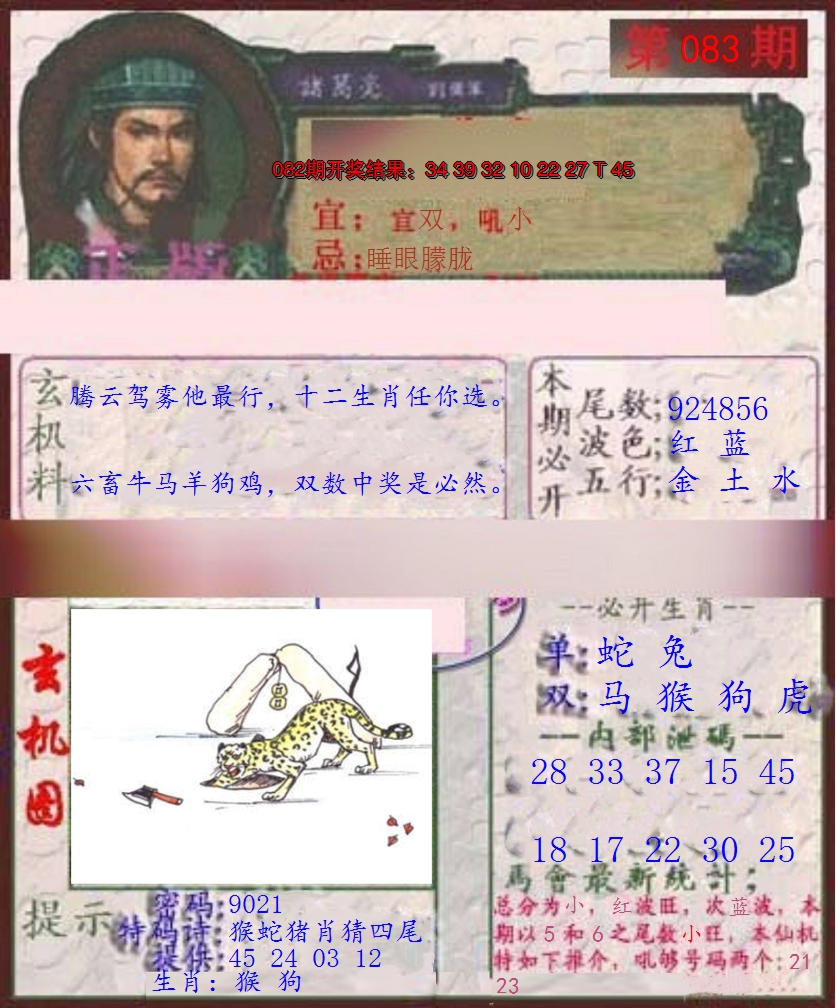 第 083 期
諸葛亮
082期开奖结果：34 39 32 10 22 27 T 45
宜；宜双，吼小
忌；睡眼朦胧
正版
玄机料
腾云驾雾他最行，十二生肖任你选。
六畜牛马羊狗鸡，双数中奖是必然。
本期必开
尾数；924856
波色；红 蓝
五行；金 土 水
玄机图
--必开生肖--
单：蛇 兔
双：马 猴 狗 虎
—内部泄碼—
28 33 37 15 45
18 17 22 30 25
馬會最新統計；
总分为小，红波旺，次蓝波，本
期以5和6之尾数小旺，本仙机
特如下推介，吼够号码两个：21
23
提示
密码：9021
特码诗：猴蛇猪肖猜四尾
提供：45 24 03 12
生肖：猴 狗